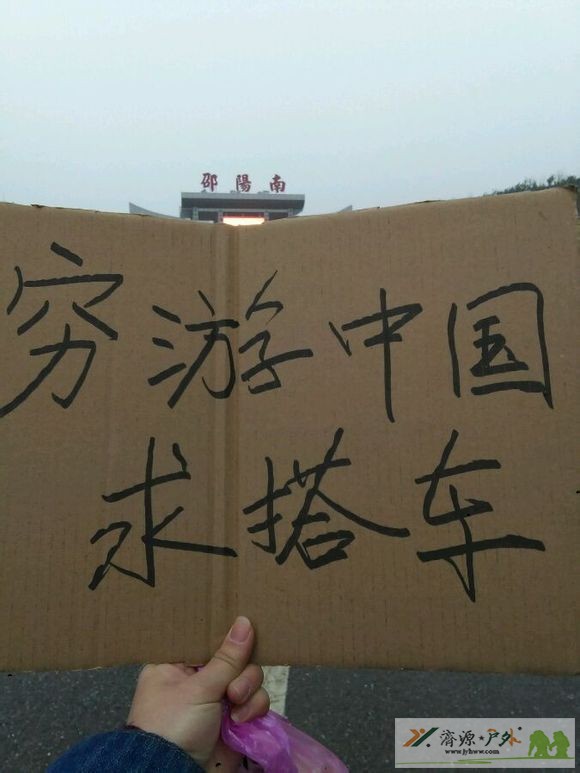 邵陽南
穷游中国
求搭车
济源·户外
www.jyhww.com